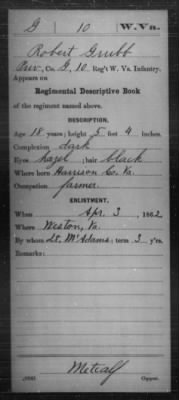 G 10 W.Va.
Robert Grubb
Priv, Co. G, 10 Reg't W. Va. Infantry.
Appears on
Regimental Descriptive Book
of the regiment named above.
DESCRIPTION.
Age 18 years; height 5 feet 4 inches.
Complexion dark
Eyes hazel; hair black
Where born Harrison Co. Va.
Occupation farmer.
ENLISTMENT.
When Apr. 3, 1862
Where Weston, Va.
By whom Lt. McAdams; term 3 y'rs.
Remarks:
Metcalf
Copyist.